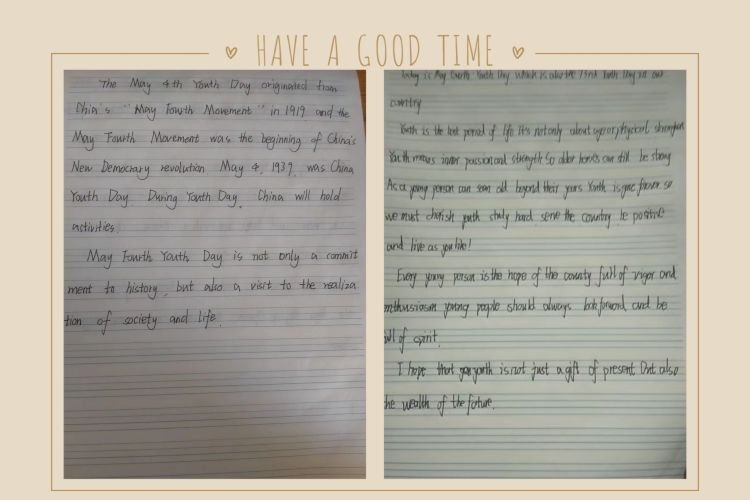 HAVE A GOOD TIME
The May 4th Youth Day originated from
Chin's "May Fourth Movement" in 1919 and the
May Fourth Movement was the beginning of China's
New Democrary revolution May 4, 1939, was China
Youth Day. During Youth Day, China will hold
activities.
May Fourth Youth Day is not only a commit
ment to history, but also a visit to the realiza
tion of society and life.
Today is May Fourth Youth Day which is also the 73rd Youth Day in our
country
Youth is the best period of life It's not only about age or physical strength
Youth means inner passion and strength So older hearts can still be strong
As a young person can seem old beyond their years Youth is gone forever so
we must cherish youth study hard serve the country be positive
and live as you like!
Every young person is the hope of the county full of vigor and
enthusiasm young people should always look forward and be
full of spirit.
I hope that youth is not just a gift of present But also
the wealth of the future.